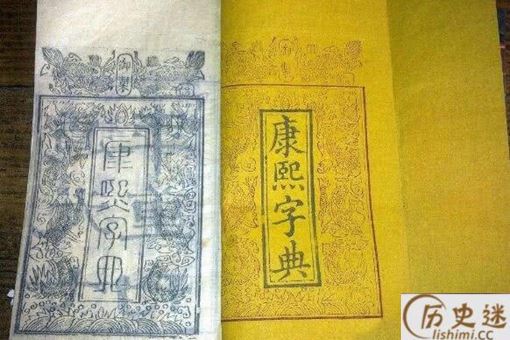 御製
康熙字典
御製
康熙字典
历史迷
lishimi.cc